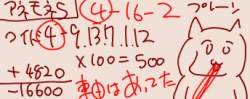 アネモネS ④-16-2 プレーン
ワイド④-9.13.7.11.12
×100=500
+4820
-16600
車由はあってた